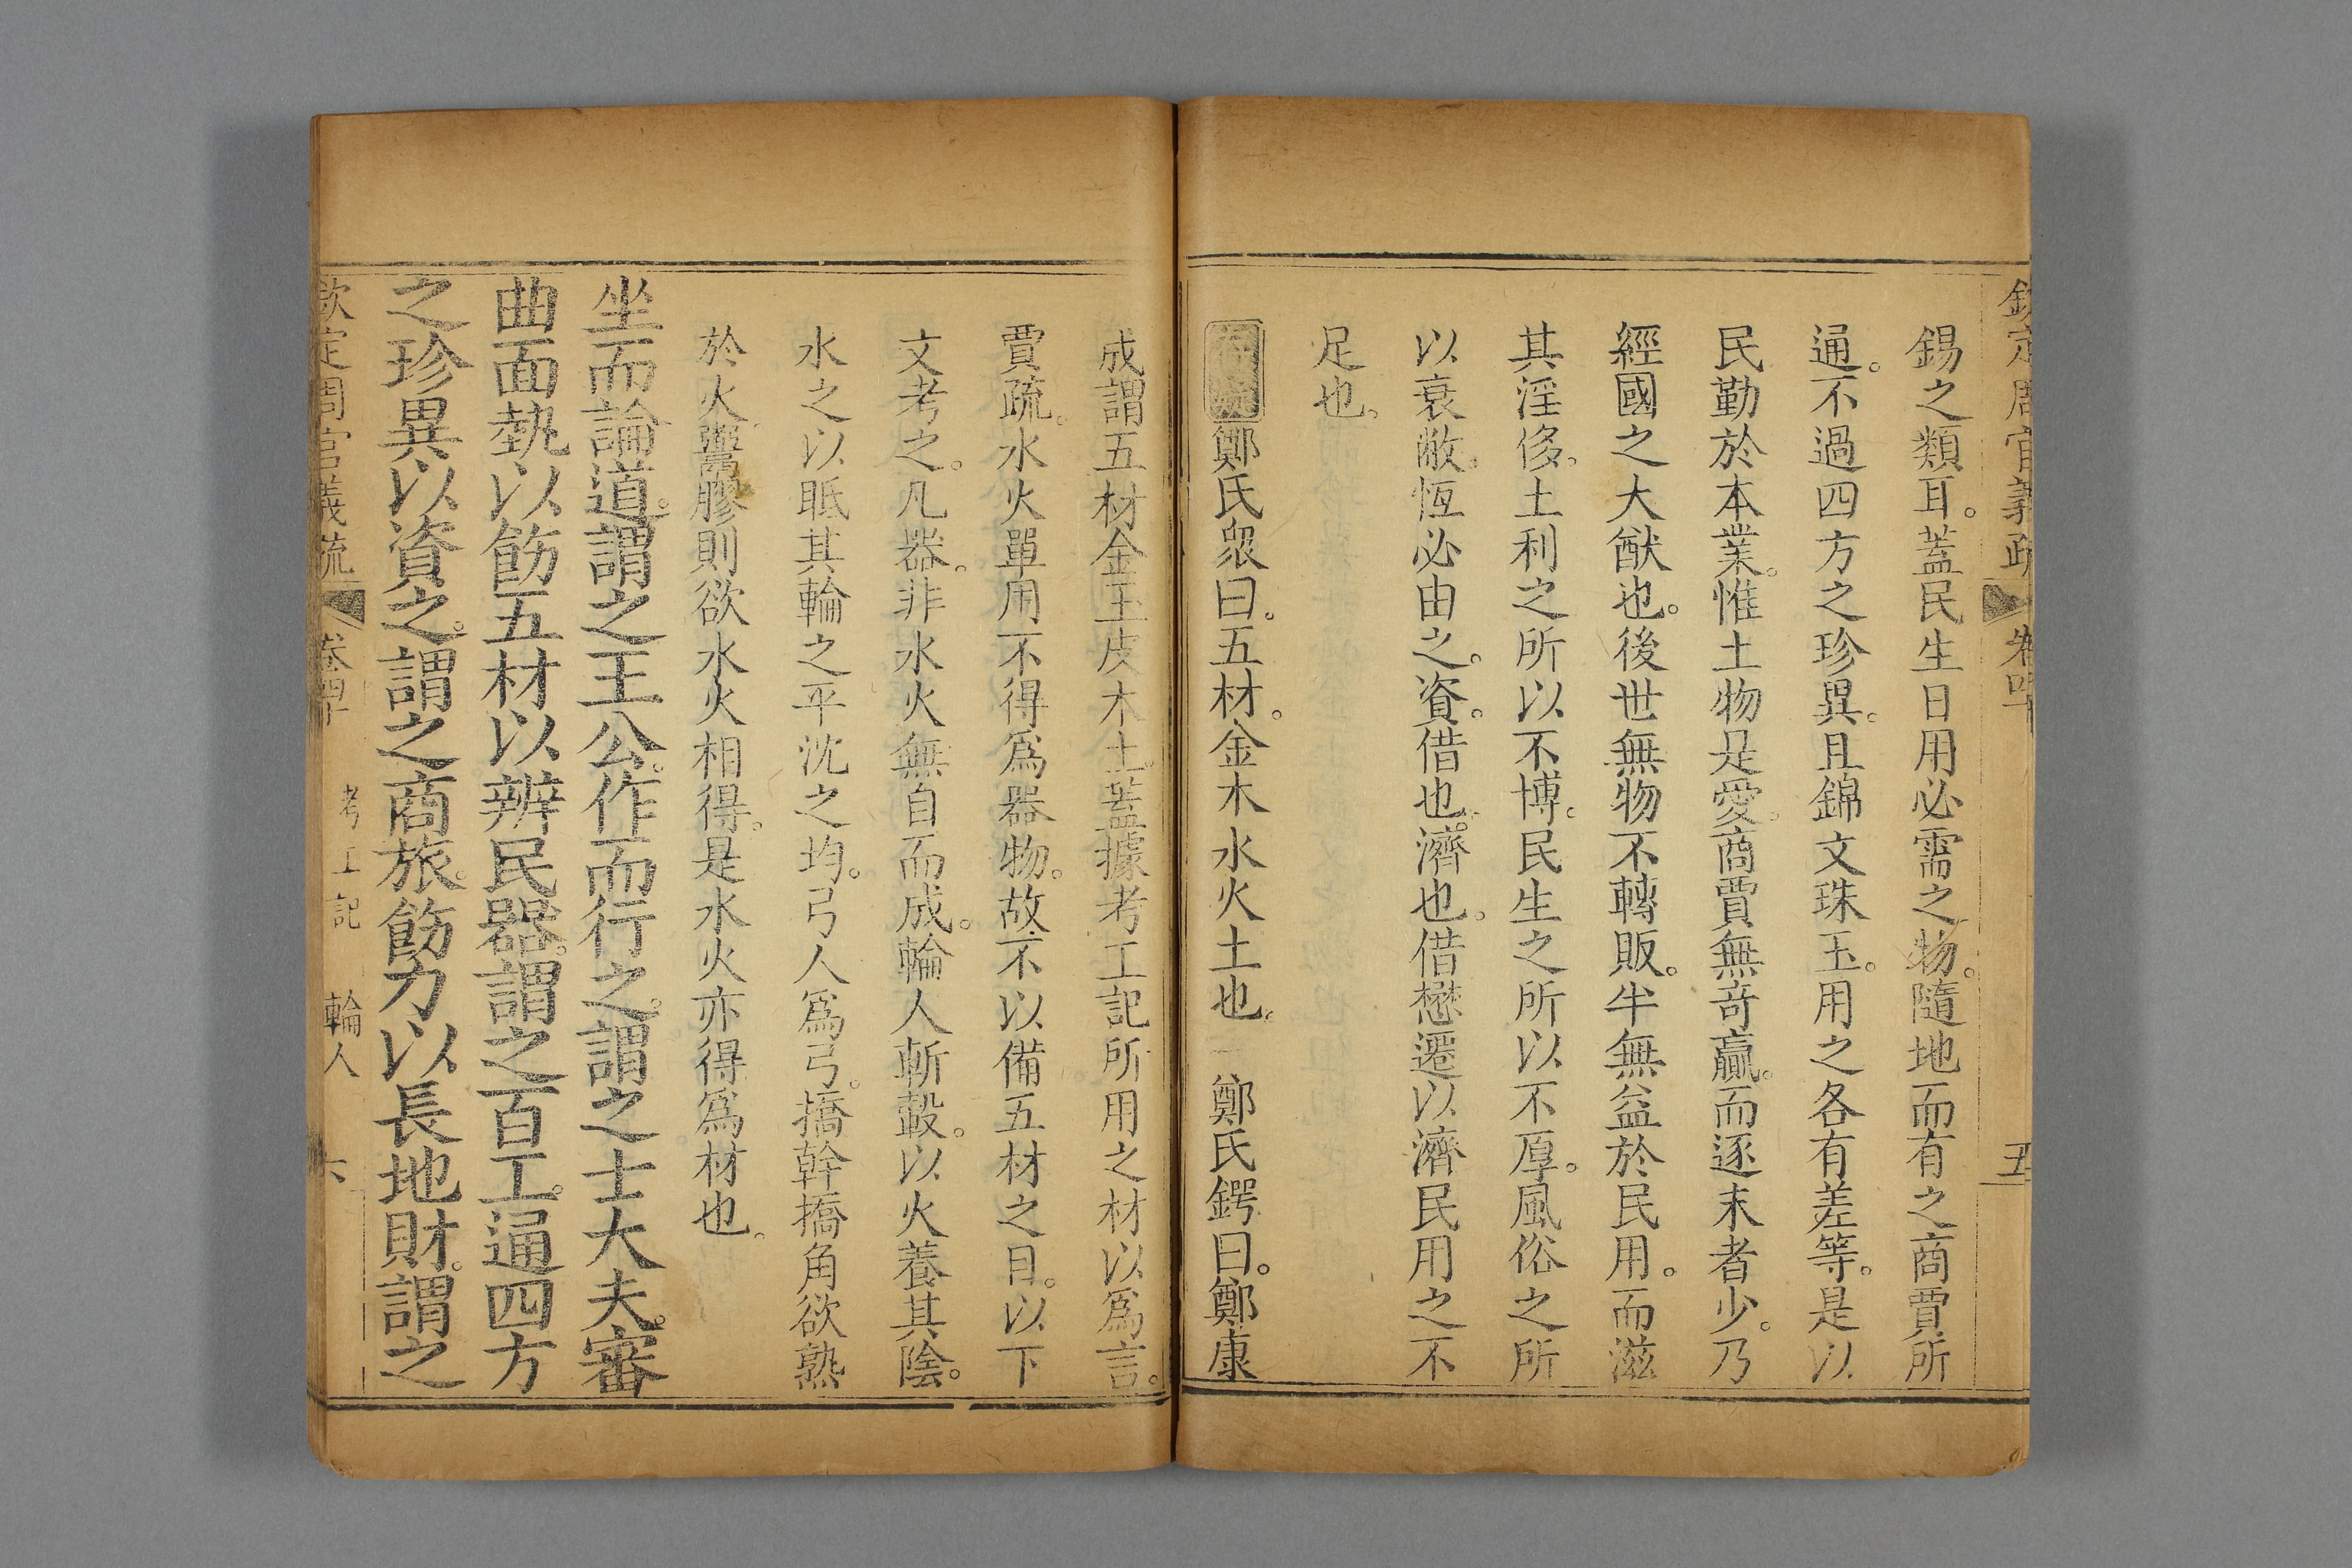 欽定周官義疏 卷四十 五
錫之類耳。蓋民生日用必需之物。隨地而有之商賈所
通。不過四方之珍異。且錦文珠玉。用之各有差等。是以
民勤於本業。惟土物是愛。商賈無奇贏。而逐末者少。乃
經國之大猷也。後世無物不轉販。半無益於民用。而滋
其淫侈。土利之所以不博。民生之所以不厚。風俗之所
以衰敝。恆必由之。資。借也。濟也。借懋遷以濟民用之不
足也。
鄭氏眾曰。五材。金木水火土也。 鄭氏鍔曰。鄭康
成謂五材金玉皮木土。蓋據考工記所用之材以爲言。
賈疏。水火單用不得爲器物。故不以備五材之目。以下
文考之。凡器。非水火無自而成。輪人斬轂。以火養其陰。
水之以眡其輪之平沈之均。弓人爲弓。撟幹撟角欲熟
於火。鬻膠則欲水火相得。是水火亦得爲材也。
坐而論道。謂之王公。作而行之。謂之士大夫。審
曲面埶以飭五材以辨民器。謂之百工。通四方
之珍異以資之。謂之商旅。飭力以長地財。謂之
欽定周官義疏 卷四十 考工記 輪人 六